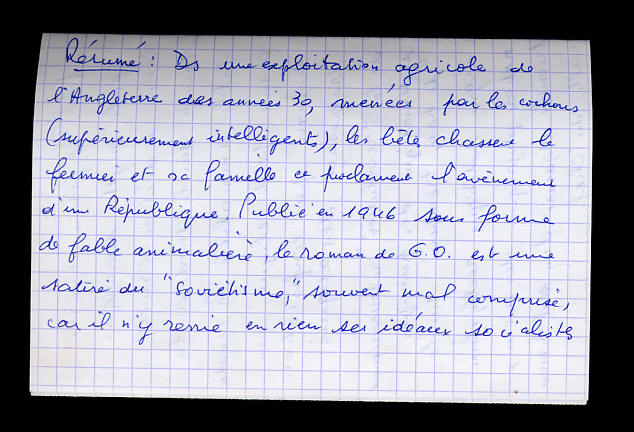 Résumé : Ds une exploitation agricole de
l'Angleterre des années 30, menées par les cochons
(supérieurement intelligents), les bêtes chassent le
fermier et sa famille et proclament l'avènement
d'une République. Publié en 1946 sous forme
de fable animalière, le roman de G.O. est une
satire du "Soviétisme," souvent mal comprise,
car il n'y renie en rien ses idéaux socialistes